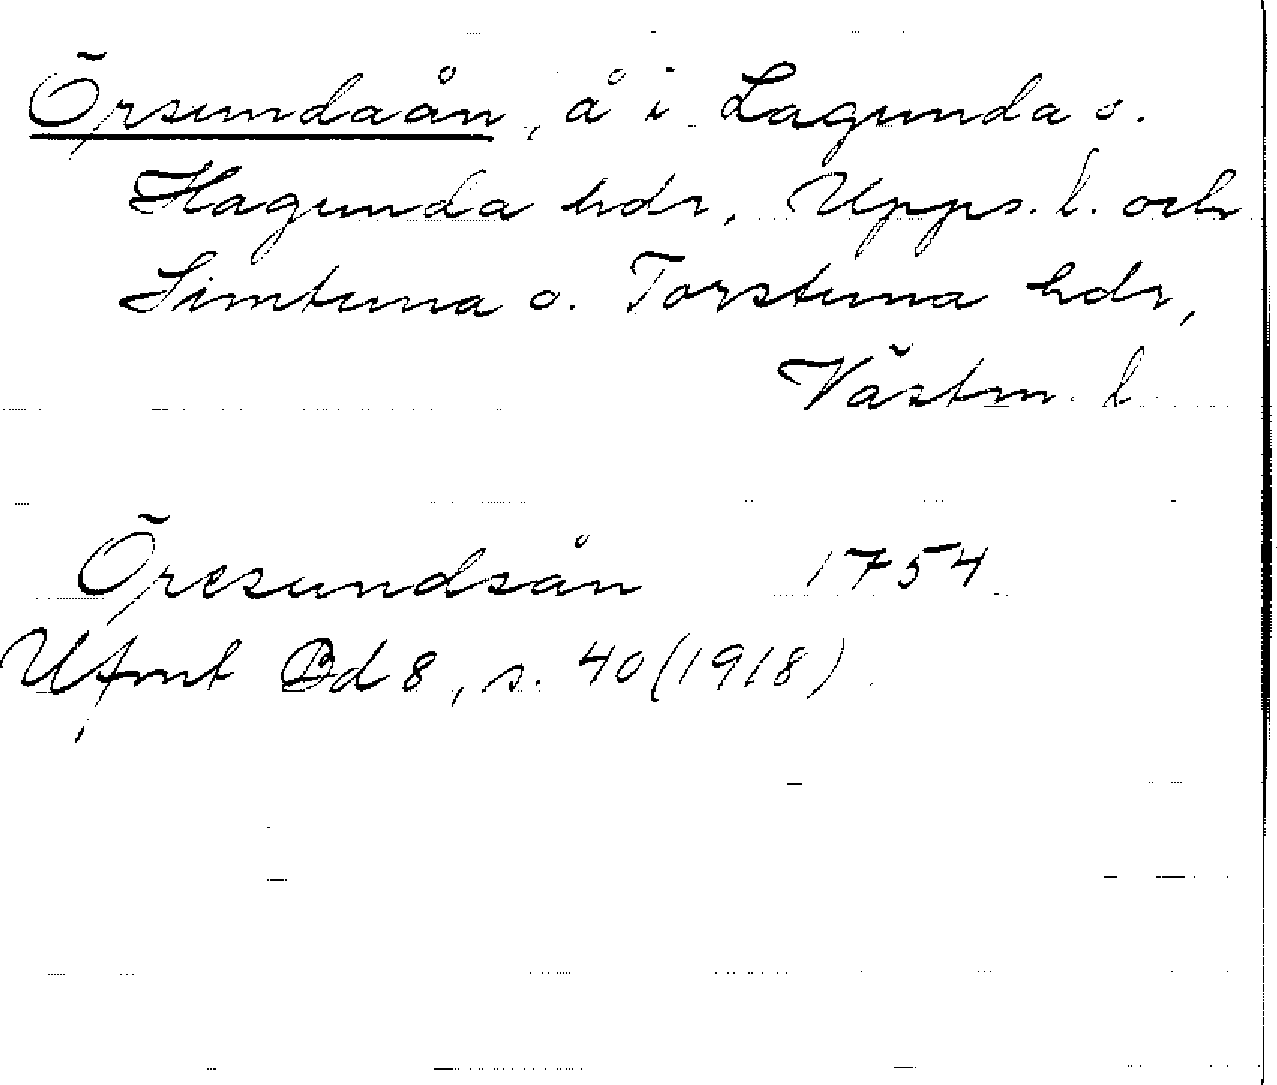 Örsundaån, å i Lagunda o.
Hagunda hdr, Upps. l. och
Simtuna o. Torstuna hdr,
Västm. l.
Öresundsån 1754
Ufmt Bd 8, s. 40 (1918)